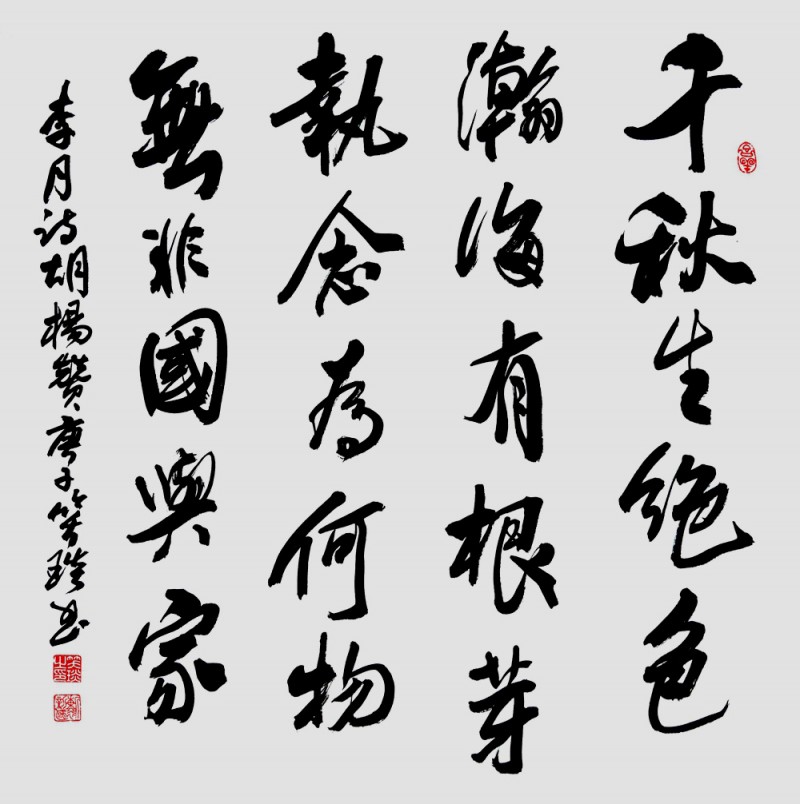 千秋生绝色
瀚海有根芽
執念為何物
無非國與家
李月诗胡楊赞庚子笑琰书